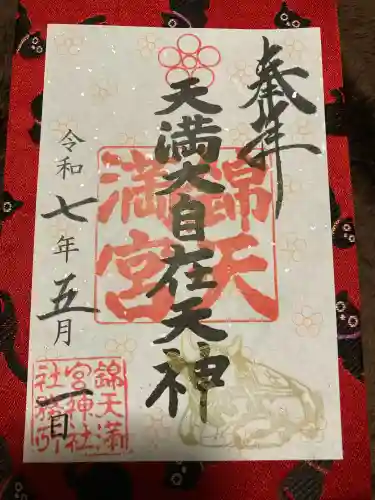 奉拝
天満大自在天神
錦天
満宮
令和七年五月
一日
錦天満
宮神社
社務所